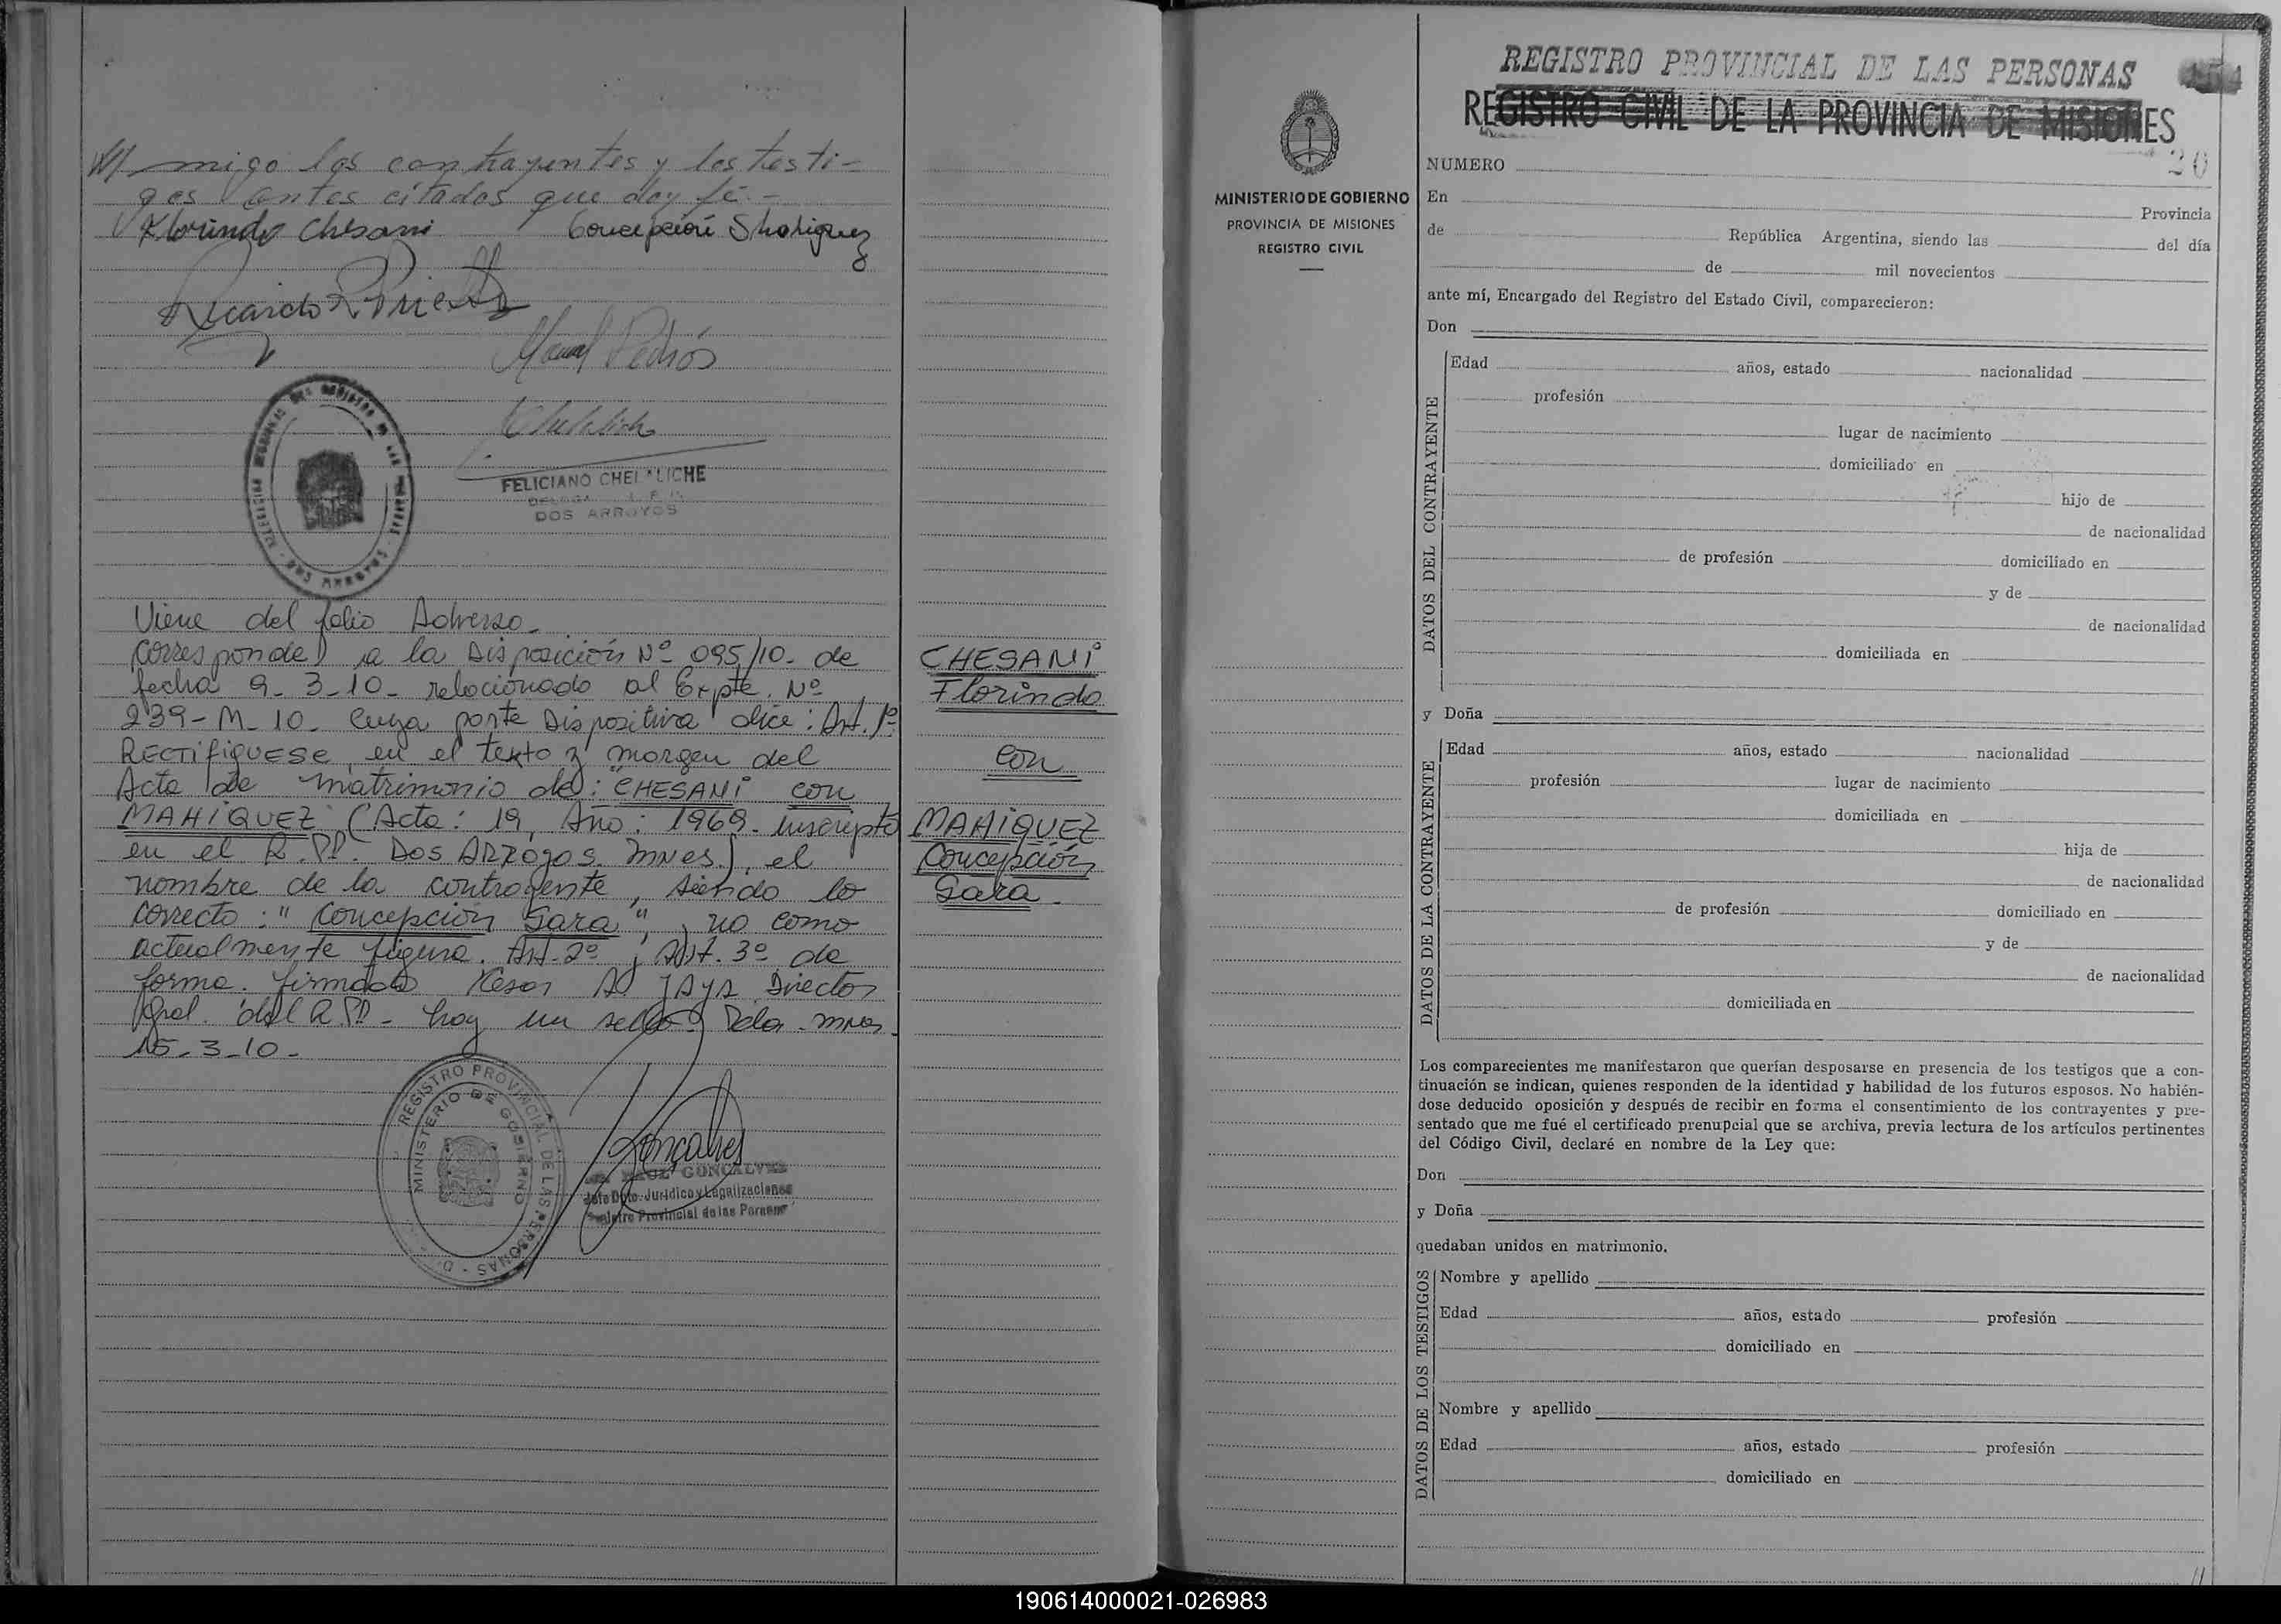 migo los contrayentes y los testi-
gos antes citados que doy fé.-
Florindo Chesani Concepción S Mahiquez
Ricardo R Prieto
Manuel Pedrós
FELICIANO CHEL LICHE
DOS ARROYOS
Viene del folio Adverso.
Corresponde a la Disposición Nº 095/10. de
fecha 9-3-10- relacionado al Expte. Nº
239-M-10- Cuya parte Dispositiva dice: Art. 1º
RECTIFIQUESE, en el texto y margen del
Acta de matrimonio de: CHESANI con
MAHIQUEZ (Acta: 19, Año: 1969. inscripto
en el R.PP. DOS ARROYOS. MNES.), el
nombre de la contrayente, siendo lo
correcto: "Concepción Sara", y no como
actualmente figura. Art. 2º y Art. 3º de
forma. firmado Director
Gral. del R.PP- hay un sello. Pdas. Mnes
15-3-10-
CHESANI
Florindo
con
MAHIQUEZ
Concepción
Sara.
REGISTRO PROVINCIAL DE LAS PERSONAS
MINISTERIO DE GOBIERNO
RAUL GONCALVES
Jefe Dpto. Jurídico y Legalizaciones
Registro Provincial de las Personas
REGISTRO PROVINCIAL DE LAS PERSONAS
REGISTRO CIVIL DE LA PROVINCIA DE MISIONES
MINISTERIO DE GOBIERNO
PROVINCIA DE MISIONES
REGISTRO CIVIL
NUMERO 20
En Provincia
de República Argentina, siendo las del día
de mil novecientos
ante mí, Encargado del Registro del Estado Civil, comparecieron:
Don
DATOS DEL CONTRAYENTE
Edad años, estado nacionalidad
profesión
lugar de nacimiento
domiciliado en
hijo de
de nacionalidad
de profesión domiciliado en
y de
de nacionalidad
domiciliada en
y Doña
DATOS DE LA CONTRAYENTE
Edad años, estado nacionalidad
profesión lugar de nacimiento
domiciliada en
hija de
de nacionalidad
de profesión domiciliado en
y de
de nacionalidad
domiciliada en
Los comparecientes me manifestaron que querían desposarse en presencia de los testigos que a con-
tinuación se indican, quienes responden de la identidad y habilidad de los futuros esposos. No habién-
dose deducido oposición y después de recibir en forma el consentimiento de los contrayentes y pre-
sentado que me fué el certificado prenupcial que se archiva, previa lectura de los artículos pertinentes
del Código Civil, declaré en nombre de la Ley que:
Don
y Doña
quedaban unidos en matrimonio.
DATOS DE LOS TESTIGOS
Nombre y apellido
Edad años, estado profesión
domiciliado en
Nombre y apellido
Edad años, estado profesión
domiciliado en
190614000021-026983